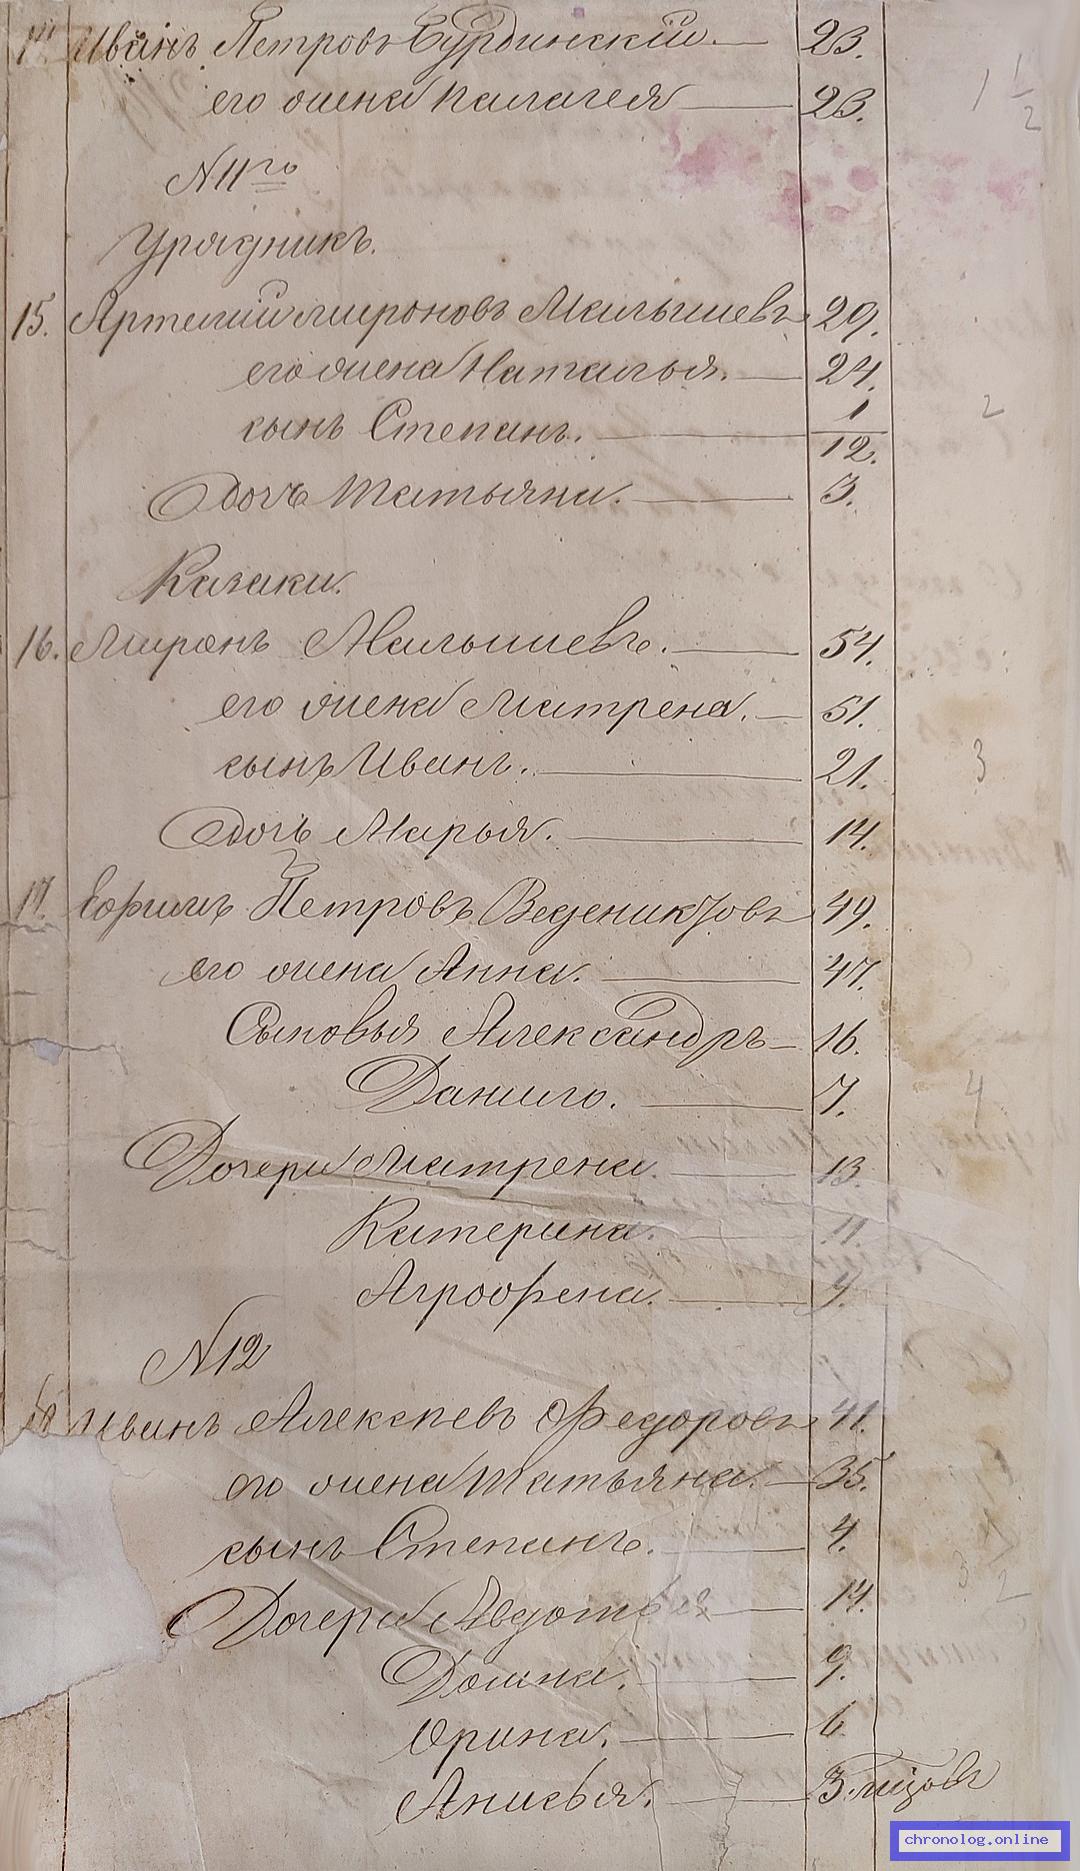 14. Иванъ Петровъ Бурдинскiй. 23. 1 1/2
его жена Палагея 23.
N 11го
Урядникъ.
15. Артемiй Мироновъ Малышевъ 29.
его жена Наталья. 24. 2
сынъ Степанъ. 1/12.
дочь Татьяна. 3.
Казаки.
16. Миронъ Малышевъ. 54.
его жена Матрена. 51.
сынъ Иванъ. 21. 3
дочь Марья. 14.
17. Ефимъ Петровъ Ведениктовъ 49.
его жена Анна. 47.
Сыновья Александръ 16.
Данило. 7. 4
Дочери Матрена. 13.
Катерина. 11.
Агрофена. 4.
N 12
18 Иванъ Алексѣевъ Федоровъ 41.
его жена Татьяна. 35.
сынъ Степанъ. 4.
Дочери Авдотья 14. 3 1/2
Домна. 9.
Орина. 6
Анисья. 3
chronolog.online